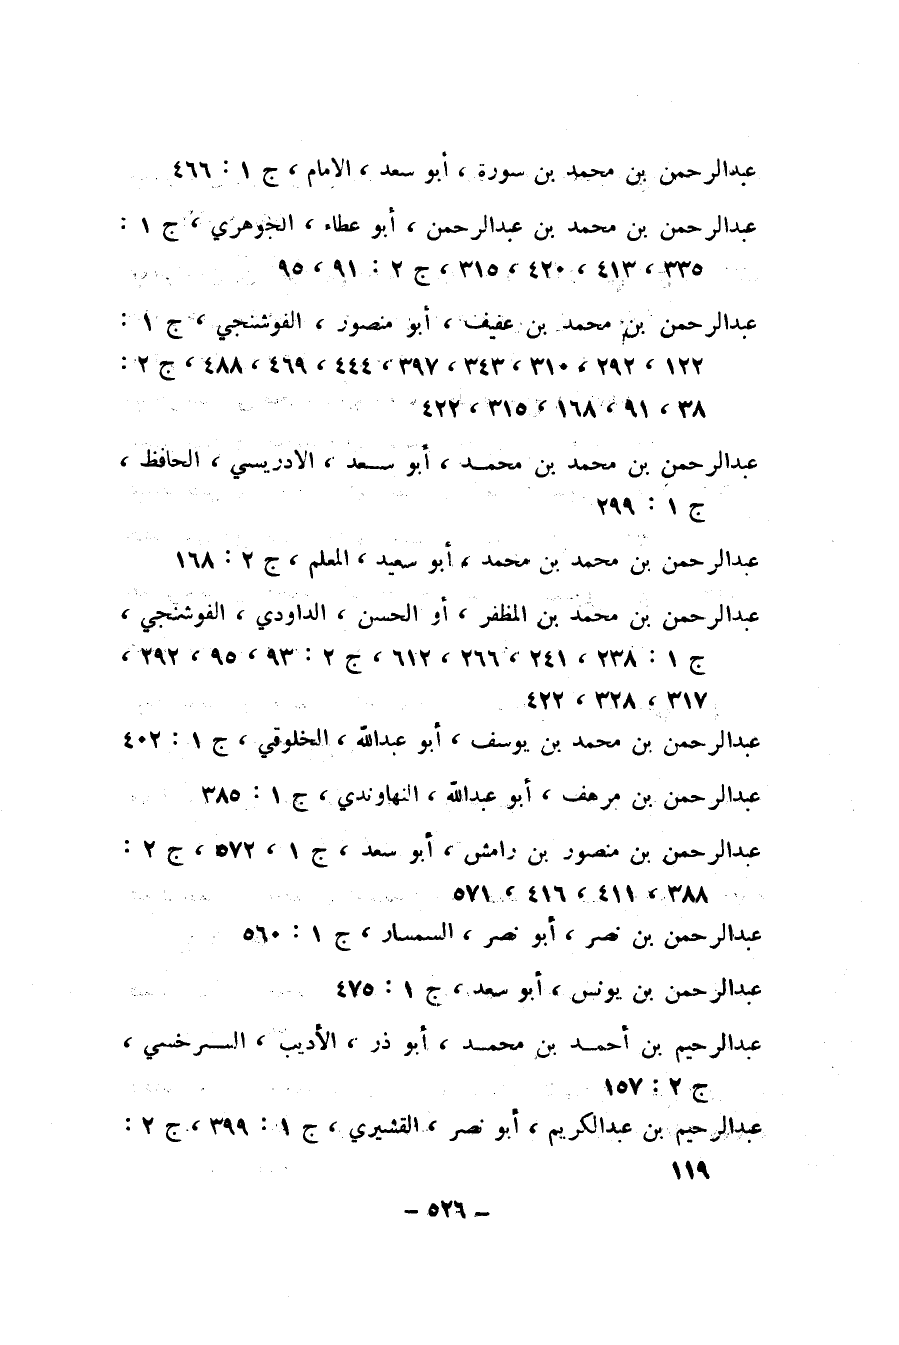 عبدالرحمن بن محمد بن سورة ، أبو سعد ، الامام ، ج ١ : ٤٦٦
عبدالرحمن بن محمد بن عبدالرحمن ، أبو عطاء ، الجوهري ، ج ١ :
٣٣٥ ، ٤١٣ ، ٤٢٠ ، ٣١٥ ، ج ٢ : ٩١ ، ٩٥
عبدالرحمن بن محمد بن عفيف ، أبو منصور ، الفوشنجي ، ج ١ :
١٢٢ ، ٢٩٢ ، ٣١٠ ، ٣٤٣ ، ٣٩٧ ، ٤٤٤ ، ٤٦٩ ، ٤٨٨ ، ج ٢ :
٣٨ ، ٩١ ، ١٦٨ ، ٣١٥ ، ٤٢٢
عبدالرحمن بن محمد بن محمد ، أبو سعد ، الادريسي ، الحافظ ،
ج ١ : ٢٩٩
عبدالرحمن بن محمد بن محمد ، أبو سعيد ، المعلم ، ج ٢ : ١٦٨
عبدالرحمن بن محمد بن المظفر ، أو الحسن ، الداودي ، الفوشنجي ،
ج ١ : ٢٣٨ ، ٢٤١ ، ٢٦٦ ، ٦١٢ ، ج ٢ : ٩٣ ، ٩٥ ، ٢٩٢ ،
٣١٧ ، ٣٢٨ ، ٤٢٢
عبدالرحمن بن محمد بن يوسف ، أبو عبدالله ، الخلوقي ، ج ١ : ٤٠٢
عبدالرحمن بن مرهف ، أبو عبدالله ، النهاوندي ، ج ١ : ٣٨٥
عبدالرحمن بن منصور بن رامش ، أبو سعد ، ج ١ ، ٥٧٢ ، ج ٢ :
٣٨٨ ، ٤١١ ، ٤١٦ ، ٥٧١
عبدالرحمن بن نصر ، أبو نصر ، السمسار ، ج ١ : ٥٦٠
عبدالرحمن بن يونس ، أبو سعد ، ج ١ : ٤٧٥
عبدالرحيم بن أحمد بن محمد ، أبو ذر ، الأديب ، السرخسي ،
ج ٢ : ١٥٧
عبدالرحيم بن عبدالكريم ، أبو نصر ، القشيري ، ج ١ : ٣٩٩ ، ج ٢ :
١١٩
– ٥٢٦ –